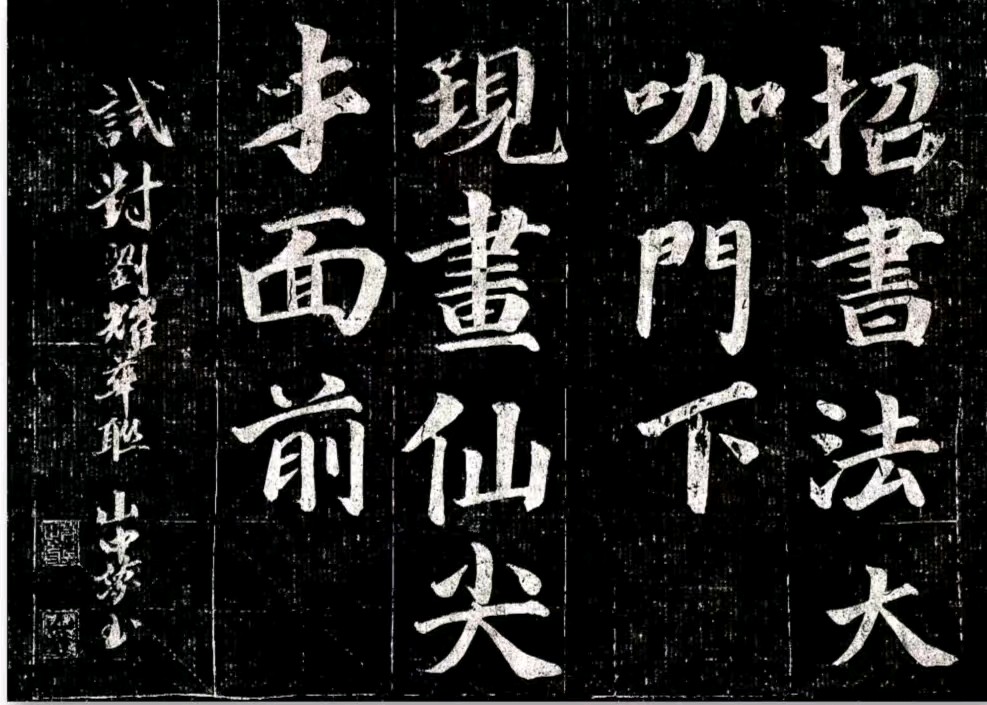 招書法大
咖門下
現畫仙尖
才面前
試對劉耀華聯 山中夢書